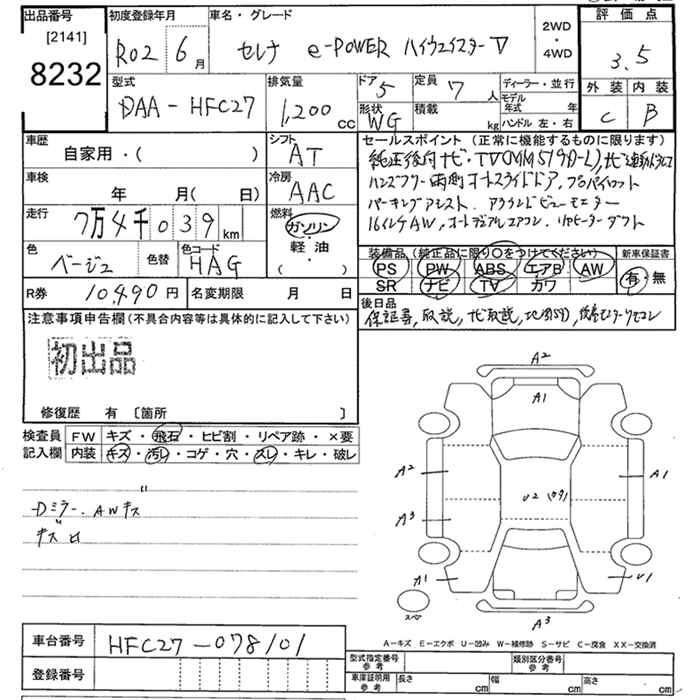 出品番号 初度登録年月 車名・グレード 評価点
[2141]
8232 R02 6月 セレナ e-POWER ハイウェイスターV 2WD・4WD 3.5
型式 排気量 ドア 5 定員 7人 ディーラー・並行 外装 内装
DAA-HFC27 1,200cc 形状 WG 積載 kg モデル年式 年 C B
ハンドル 左・右
車歴 シフト セールスポイント(正常に機能するものに限ります)
自家用・( ) AT 純正後付ナビ・TV(MM519D-L),
車検 冷房 ハンズフリー両側オートスライドドア,プロパイロット
年 月( 日) AAC パーキングアシスト. アラウンドビューモニター
走行 7万4千039km 燃料 ガソリン・軽油・( ) 16インチAW,オートデュアルエアコン.
色 ベージュ 色替 色コード HAG 装備品(純正品に限り○をつけてください) 新車保証書
PS PW ABS エアB AW 有・無
SR ナビ TV カワ
R券 10,490円 名変期限 月 日 後日品
注意事項申告欄(不具合内容等は具体的に記入して下さい) 保証書,取説,ナビ取説,
初出品
修復歴 有 〔箇所 〕
検査員 FW キズ・飛石・ヒビ割・リペア跡・×要
記入欄 内装 キズ・汚レ・コゲ・穴・スレ・キレ・破レ
Dミラー. AWキズ
キズ
A2
A1
A2 U2 A1
A3
A1 U1
スペア A3
A-キズ E-エクボ U-凹み W-補修跡 S-サビ C-腐食 XX-交換済
車台番号 HFC27-078101
型式指定番号 参考 類別区分番号 参考
登録番号 車庫証明用 参考 長さ cm 幅 cm 高さ cm